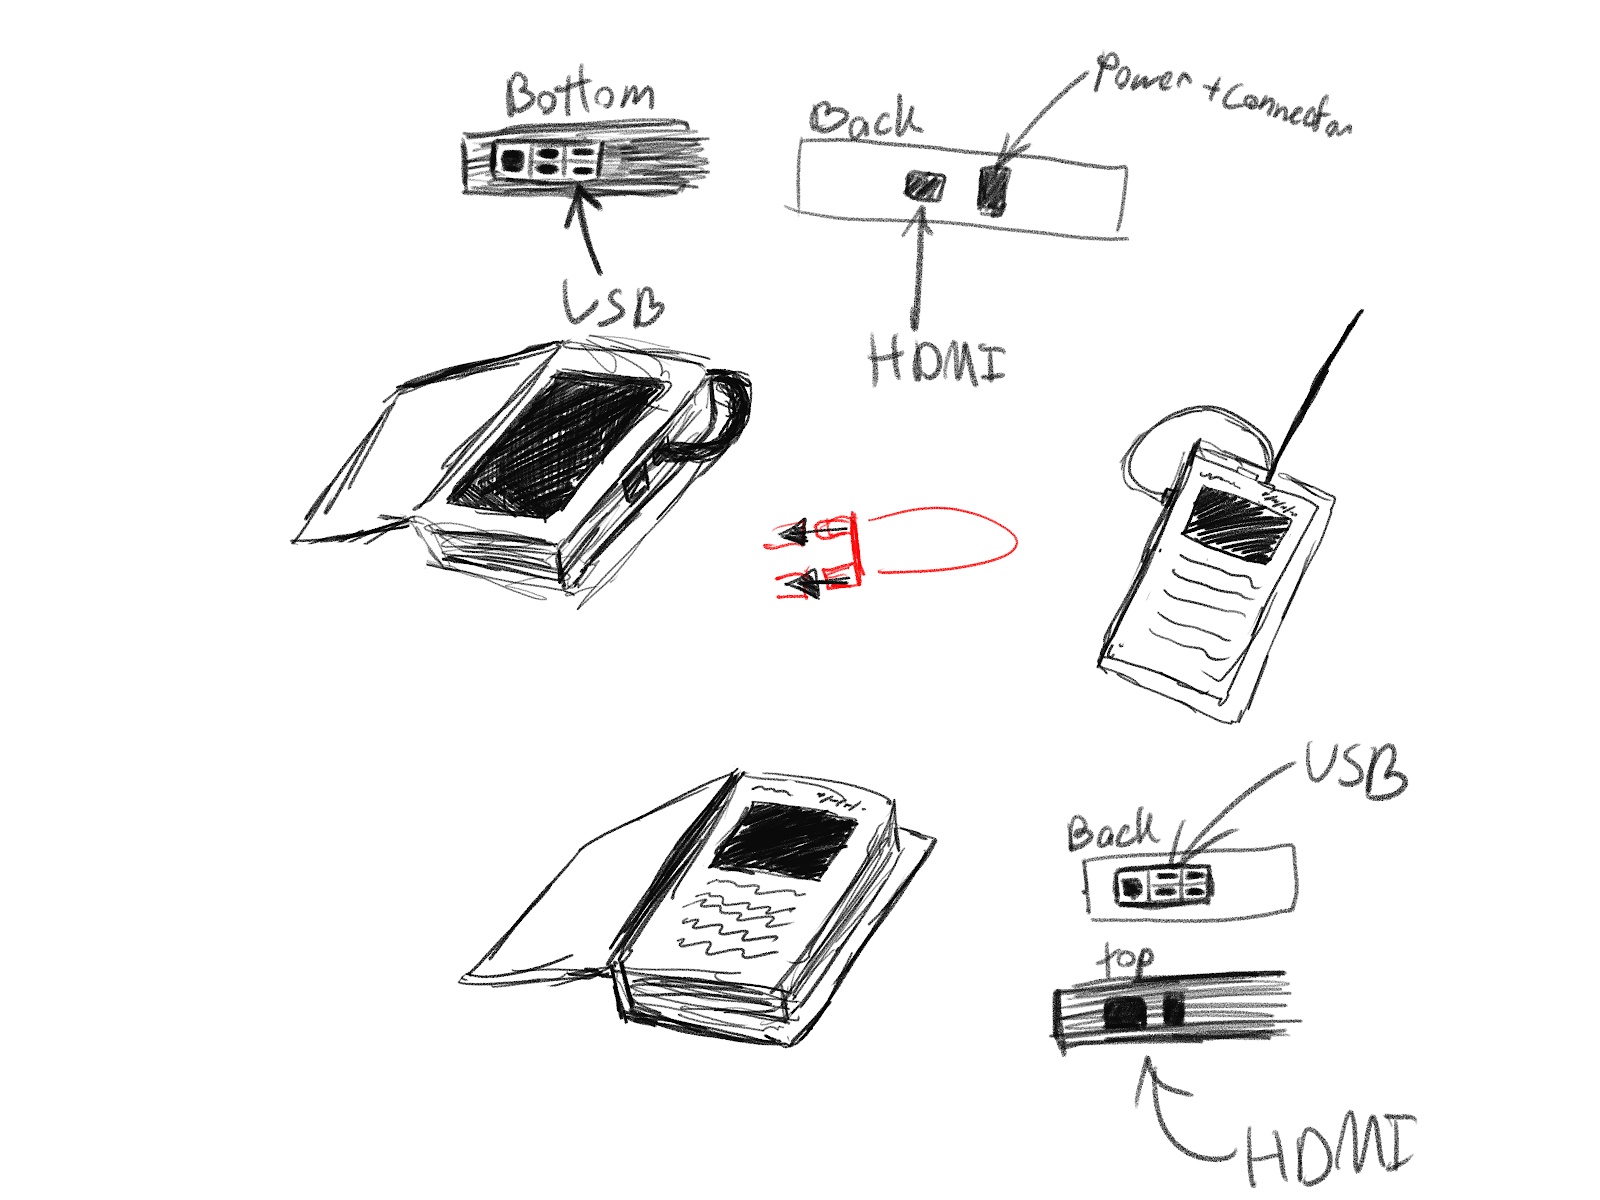 Bottom
Back
Power + Connector
USB
HDMI
USB
Back
top
HDMI